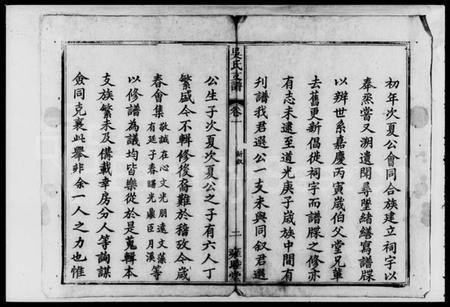 初年次夏公會同合族建立祠宇以
奉烝嘗又溯遺聞尋墜緒繕寫譜牒
以辨世系嘉慶丙寅歲伯父堂兄華
去舊更新倡徙祠宇而譜牒之修亦
有志未逮至道光庚子歲族中間有
刋譜我君選公一支未與同叙君選
吳氏支譜
卷一
新叙
二
公生子次夏次夏公之子有六人丁
繁盛今不輯修後裔難於稽攷今歲
春會集敬誠在心文光朋遠文藻等
有廷子春曙光鼎臣月溪
以修譜為議均皆樂從於是蒐輯本
支族繁未及備載幸房分人等詢謀
僉同克襄此舉非余一人之力也惟